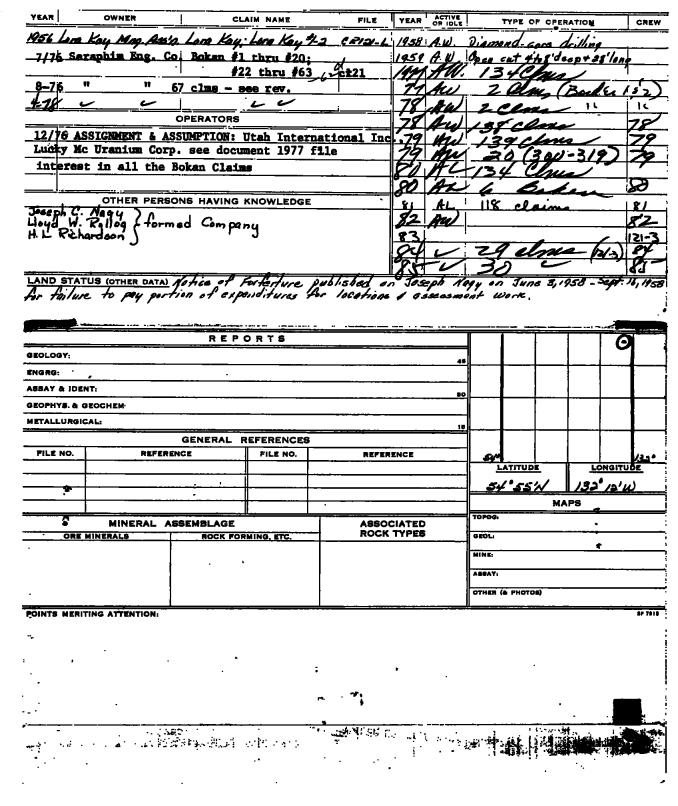 YEAR OWNER CLAIM NAME FILE YEAR ACTIVE OR IDLE TYPE OF OPERATION CREW
1956 Lora Kay Mng. Ass'n Lora Kay; Lora Kay #2 1958 A.W. Diamond-core drilling
7/76 Saraphim Eng. Co. Bokan #1 thru #20; 1959 A.W. Open cut
#22 thru #63 ct21 A.W. 134 Clms
8-76 " " 67 clms - see rev. 77 AW 2 Clms
4-78 ✓ ✓ ✓ ✓ 78 AW 2 clms "
OPERATORS 78 AW 138 clms 78
12/76 ASSIGNMENT & ASSUMPTION: Utah International Inc. 79 AW 139 clms 79
Lucky Mc Uranium Corp. see document 1977 file 79 AW 20 (300-319) 79
interest in all the Bokan Claims 80 AL 134 Clms
80 AL 6 Bokan 80
OTHER PERSONS HAVING KNOWLEDGE 81 AL 118 claims 81
Joseph C. Nagy 82 AW 82
Lloyd W. } formed Company 83 121-3
H.L. Richardson 84 ✓ 29 clms (121-3) 84
85 ✓ 30 ✓ 85
LAND STATUS (OTHER DATA) Notice of Forfeiture published on Joseph Nagy on June 3, 1958 - Sept. 16, 1958
for failure to pay portion of expenditures for locations & assessment work.
REPORTS
GEOLOGY: 45
ENGRG:
ASSAY & IDENT: 30
GEOPHYS. & GEOCHEM
METALLURGICAL: 15
GENERAL REFERENCES
FILE NO. REFERENCE FILE NO. REFERENCE
54° 132°
LATITUDE LONGITUDE
54° 55'N 132° 12'W
MAPS
MINERAL ASSEMBLAGE ASSOCIATED ROCK TYPES
ORE MINERALS ROCK FORMING, ETC.
TOPOG:
GEOL:
MINE:
ASSAY:
OTHER (& PHOTOS)
POINTS MERITING ATTENTION: SF 7915